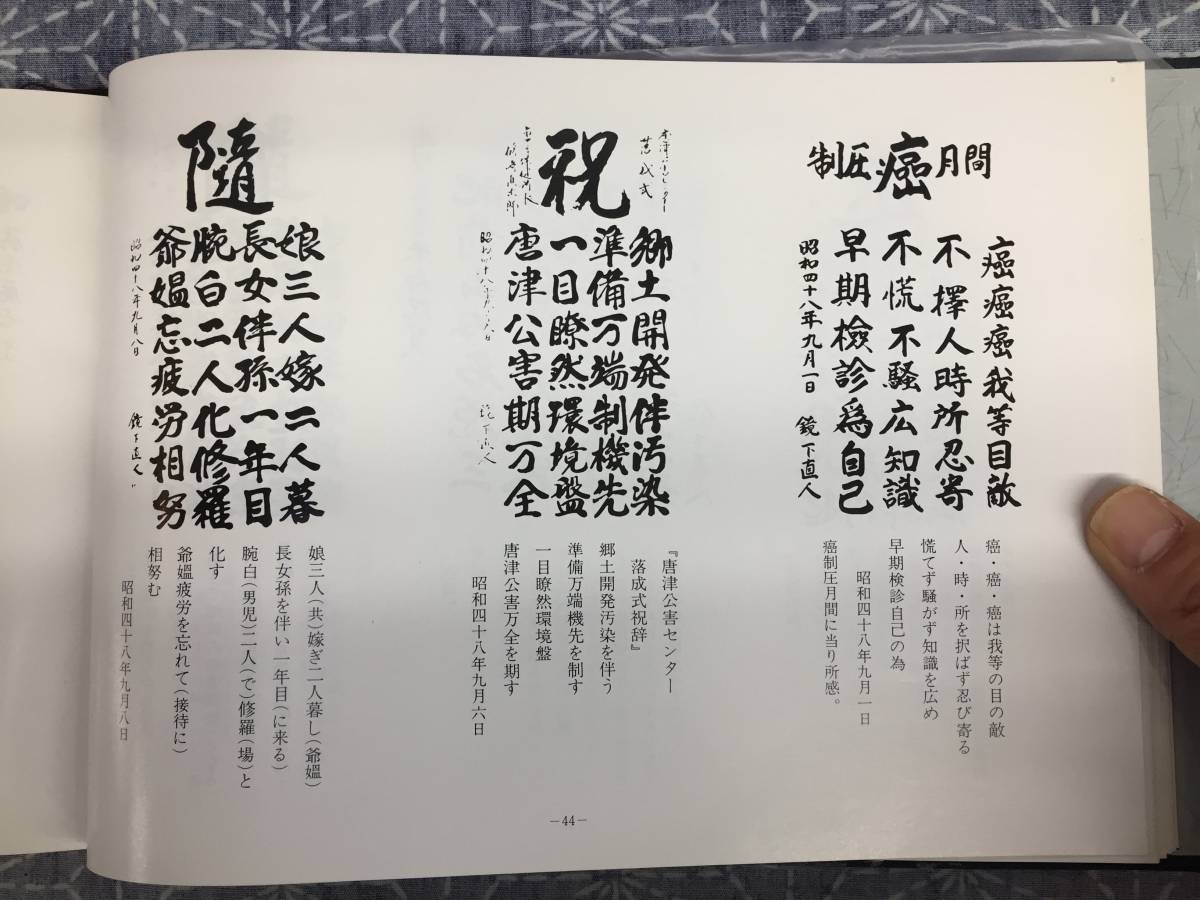 間月癌圧制
癌癌癌我等目敵
不擇人時所忍寄
不慌不騒広知識
早期檢診爲自己
昭和四十八年九月一日　鏡下直人
癌・癌・癌は我等の目の敵
人・時・所を択ばず忍び寄る
慌てず騒がず知識を広め
早期検診自己の為
昭和四十八年九月一日
癌制圧月間に当り所感。
落成式
祝
郷土開発伴汚染
準備万端制機先
一目瞭然環境盤
唐津公害期万全
『唐津公害センター
落成式祝辞』
郷土開発汚染を伴う
準備万端機先を制す
一目瞭然環境盤
唐津公害万全を期す
昭和四十八年九月六日
隨
娘三人嫁二人暮
長女伴孫一年目
腕白二人化修羅
爺媼忘疲労相努
昭和四十八年九月八日　鏡下直人
娘三人（共）嫁ぎ二人暮し（爺媼）
長女孫を伴い一年目（に来る）
腕白（男児）二人（で）修羅（場）と
化す
爺媼疲労を忘れて（接待に）
相努む
昭和四十八年九月八日
—44—